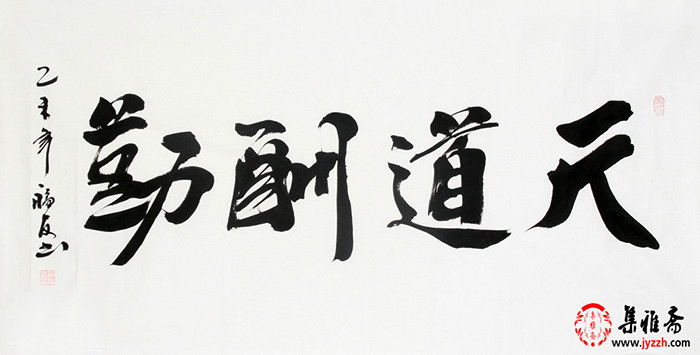 天道酬勤
乙未年 福友书
集雅斋
www.jyzzh.com